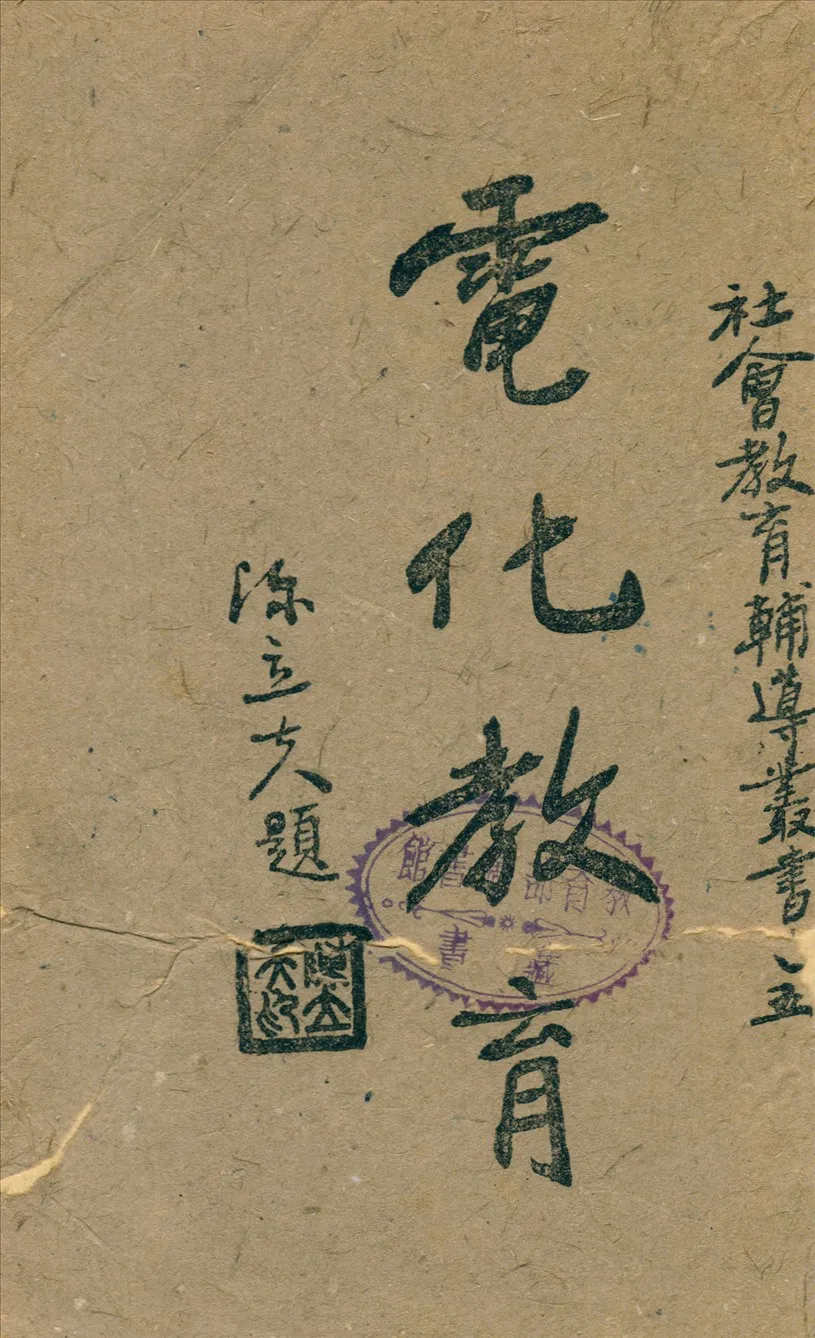 社會教育輔導叢書之五
電化教育
陳立夫題
陳立夫印
教育部圖書館
藏書